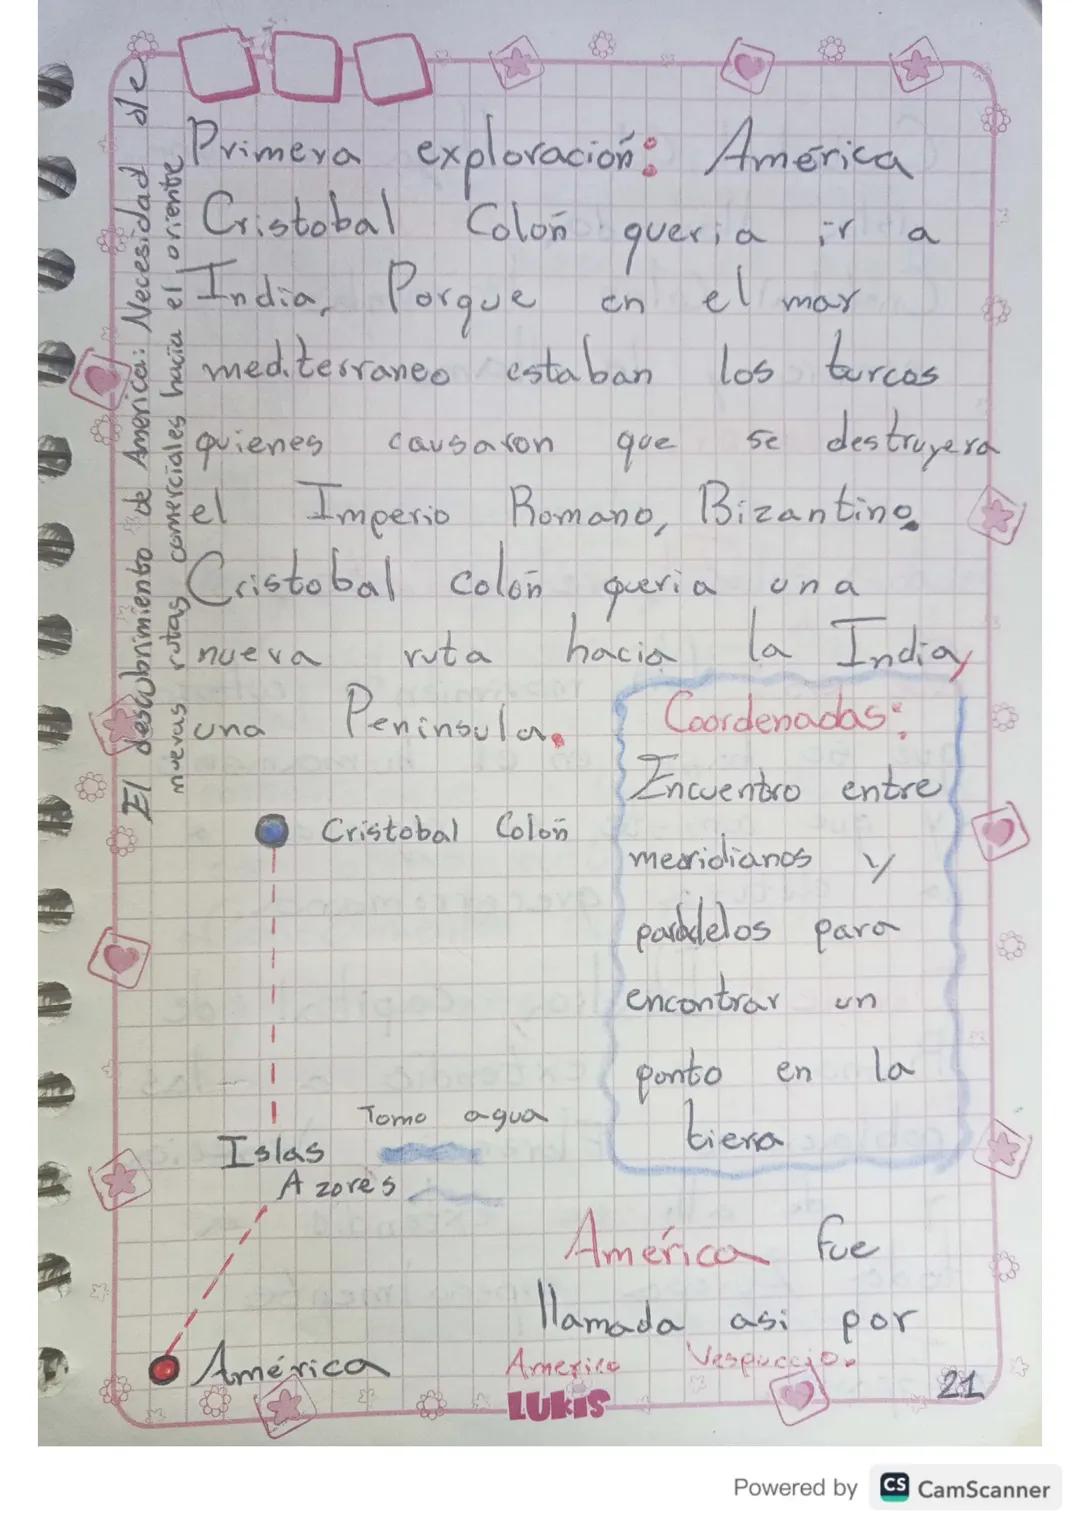 El descubrimiento de America: Necesidad de
nuevas rutas comerciales hacia el oriente
Primera exploración: América
Cristobal Colón queria ir a
India, Porque en el mar
mediterraneo estaban los turcos
quienes causaron que se destruyera
el Imperio Romano, Bizantino.
Cristobal colón queria una
nueva ruta hacia la India,
una Peninsula.
Coordenadas:
Encuentro entre
meridianos y
paralelos para
encontrar un
punto en la
tierra
Cristobal Colón
Tomo agua
Islas
Azores
América
América fue
llamada asi por
Americo Vespuccio.
LUKIS
21
Powered by CS CamScanner